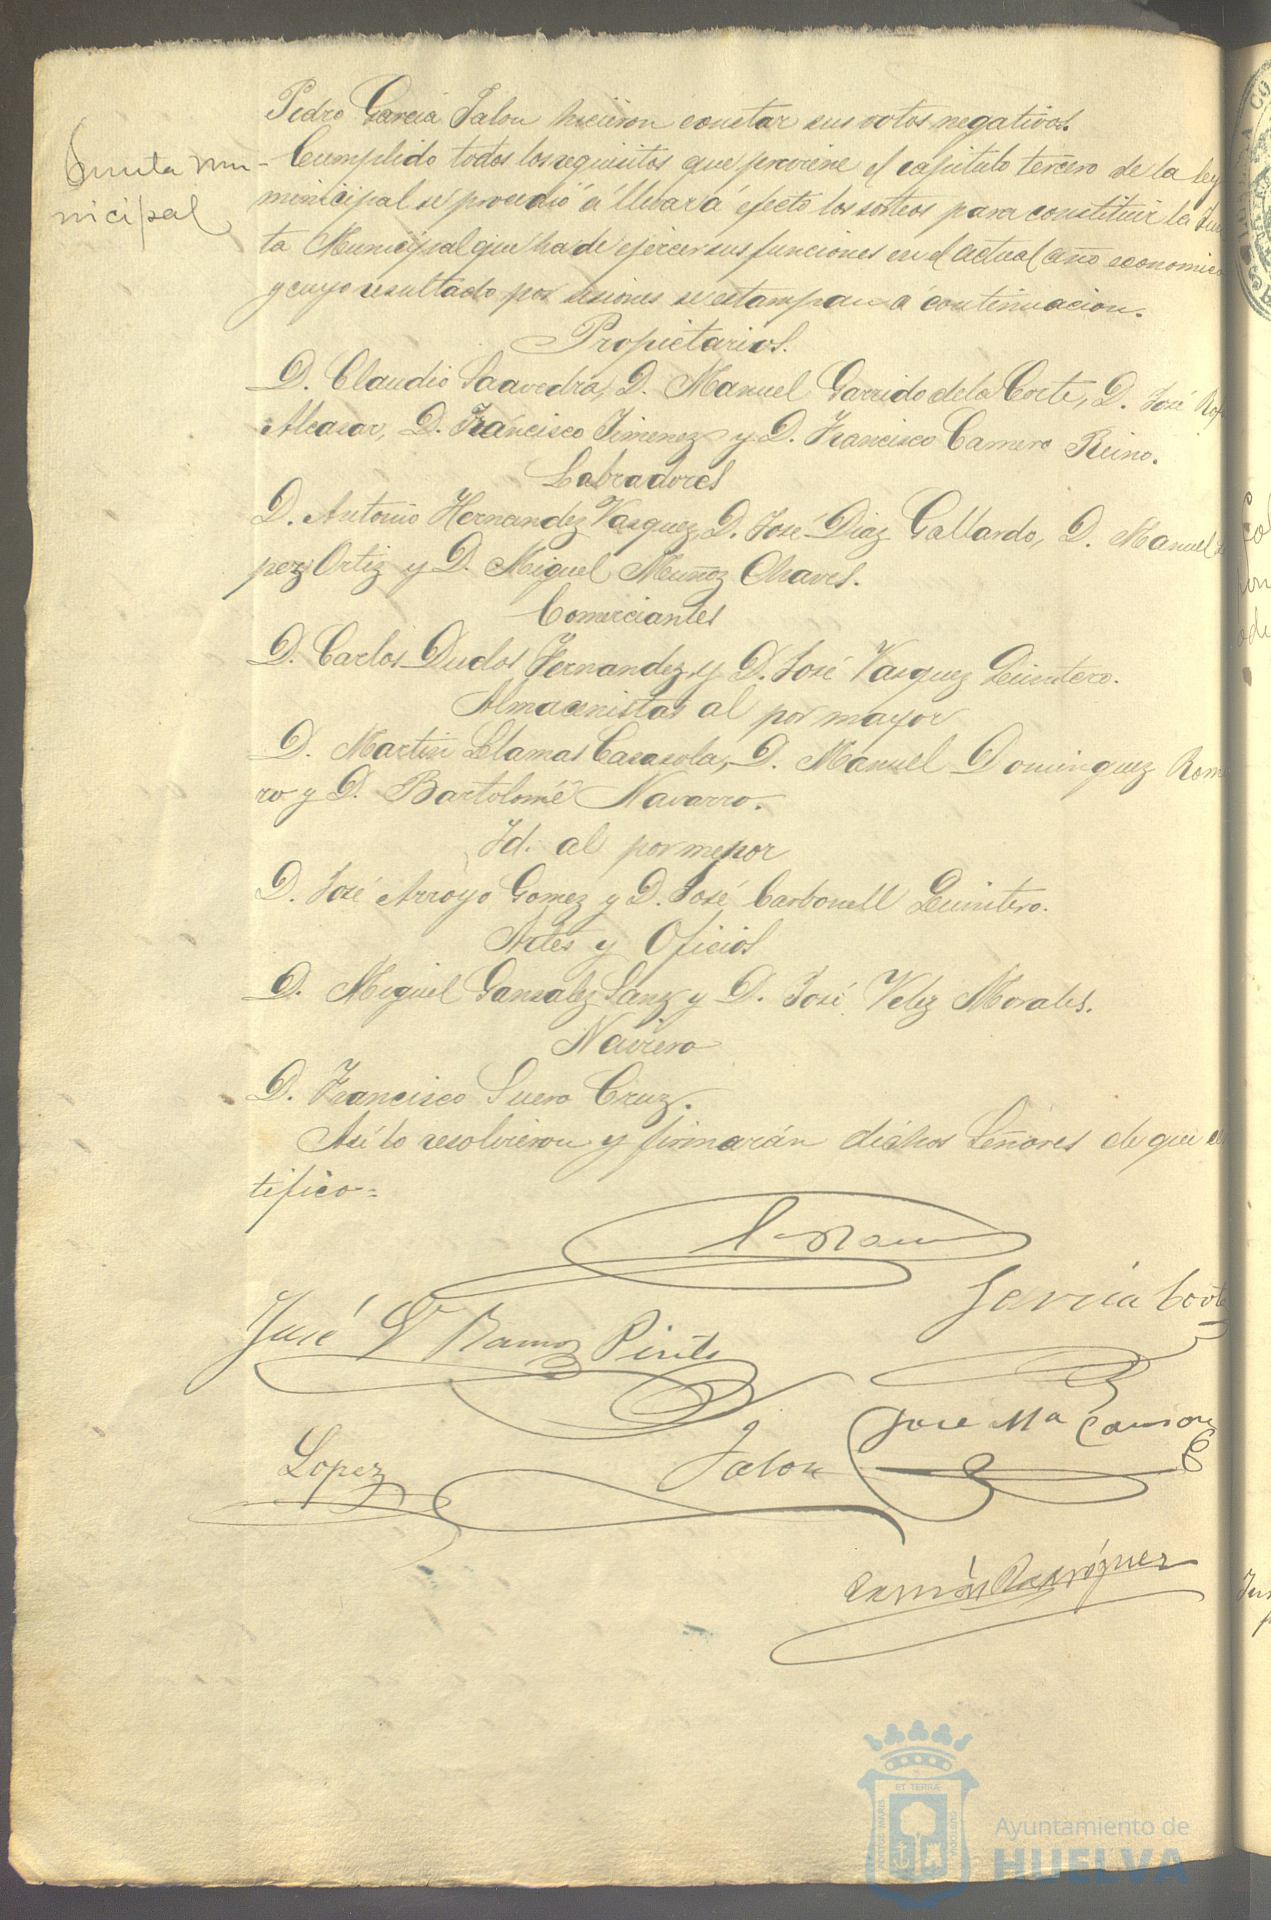 Pedro García Jalon hicieron constar sus votos negativos.
Junta mu-
nicipal
Cumplido todos los requisitos que previene el capitulo tercero de la ley
municipal se procedió á llevar á efecto los sorteos para constituir la Jun
ta Municipal que ha de ejercer sus funciones en el actual año economico
y cuyo resultado por sesiones se estampan á continuacion.
Propietarios.
D. Claudio Saavedra, D. Manuel Garrido de la Corte, D. José
Alcasar, D. Francisco Jimenez y D. Francisco Camero Reino.
Labradores
D. Antonio Hernandez Vasquez, D. José Diaz Gallardo, D. Manuel
pez Ortiz y D. Miguel Muñoz Chaves.
Comerciantes
D. Carlos Dudos Fernandez y D. José Vasquez Quintero.
Almacenistas al por mayor
D. Martin Llamas Casasola, D. Manuel Dominguez Rome
ro y D. Bartolomé Navarro.
Id. al por menor
D. José Arroyo Gomez y D. José Carbonell Quintero.
Artes y Oficios
D. Miguel Gonsalez Sanz y D. José Velez Morales.
Naviero
D. Francisco Suero Cruz.
Así lo resolvieron y firmarán dichos Señores de que
tifico=
García Corte
José Ramos Pinto
José Mª
Lopez
Jalon
Ramón Rodríguez
ET TERRÆ
Ayuntamiento de
HUELVA